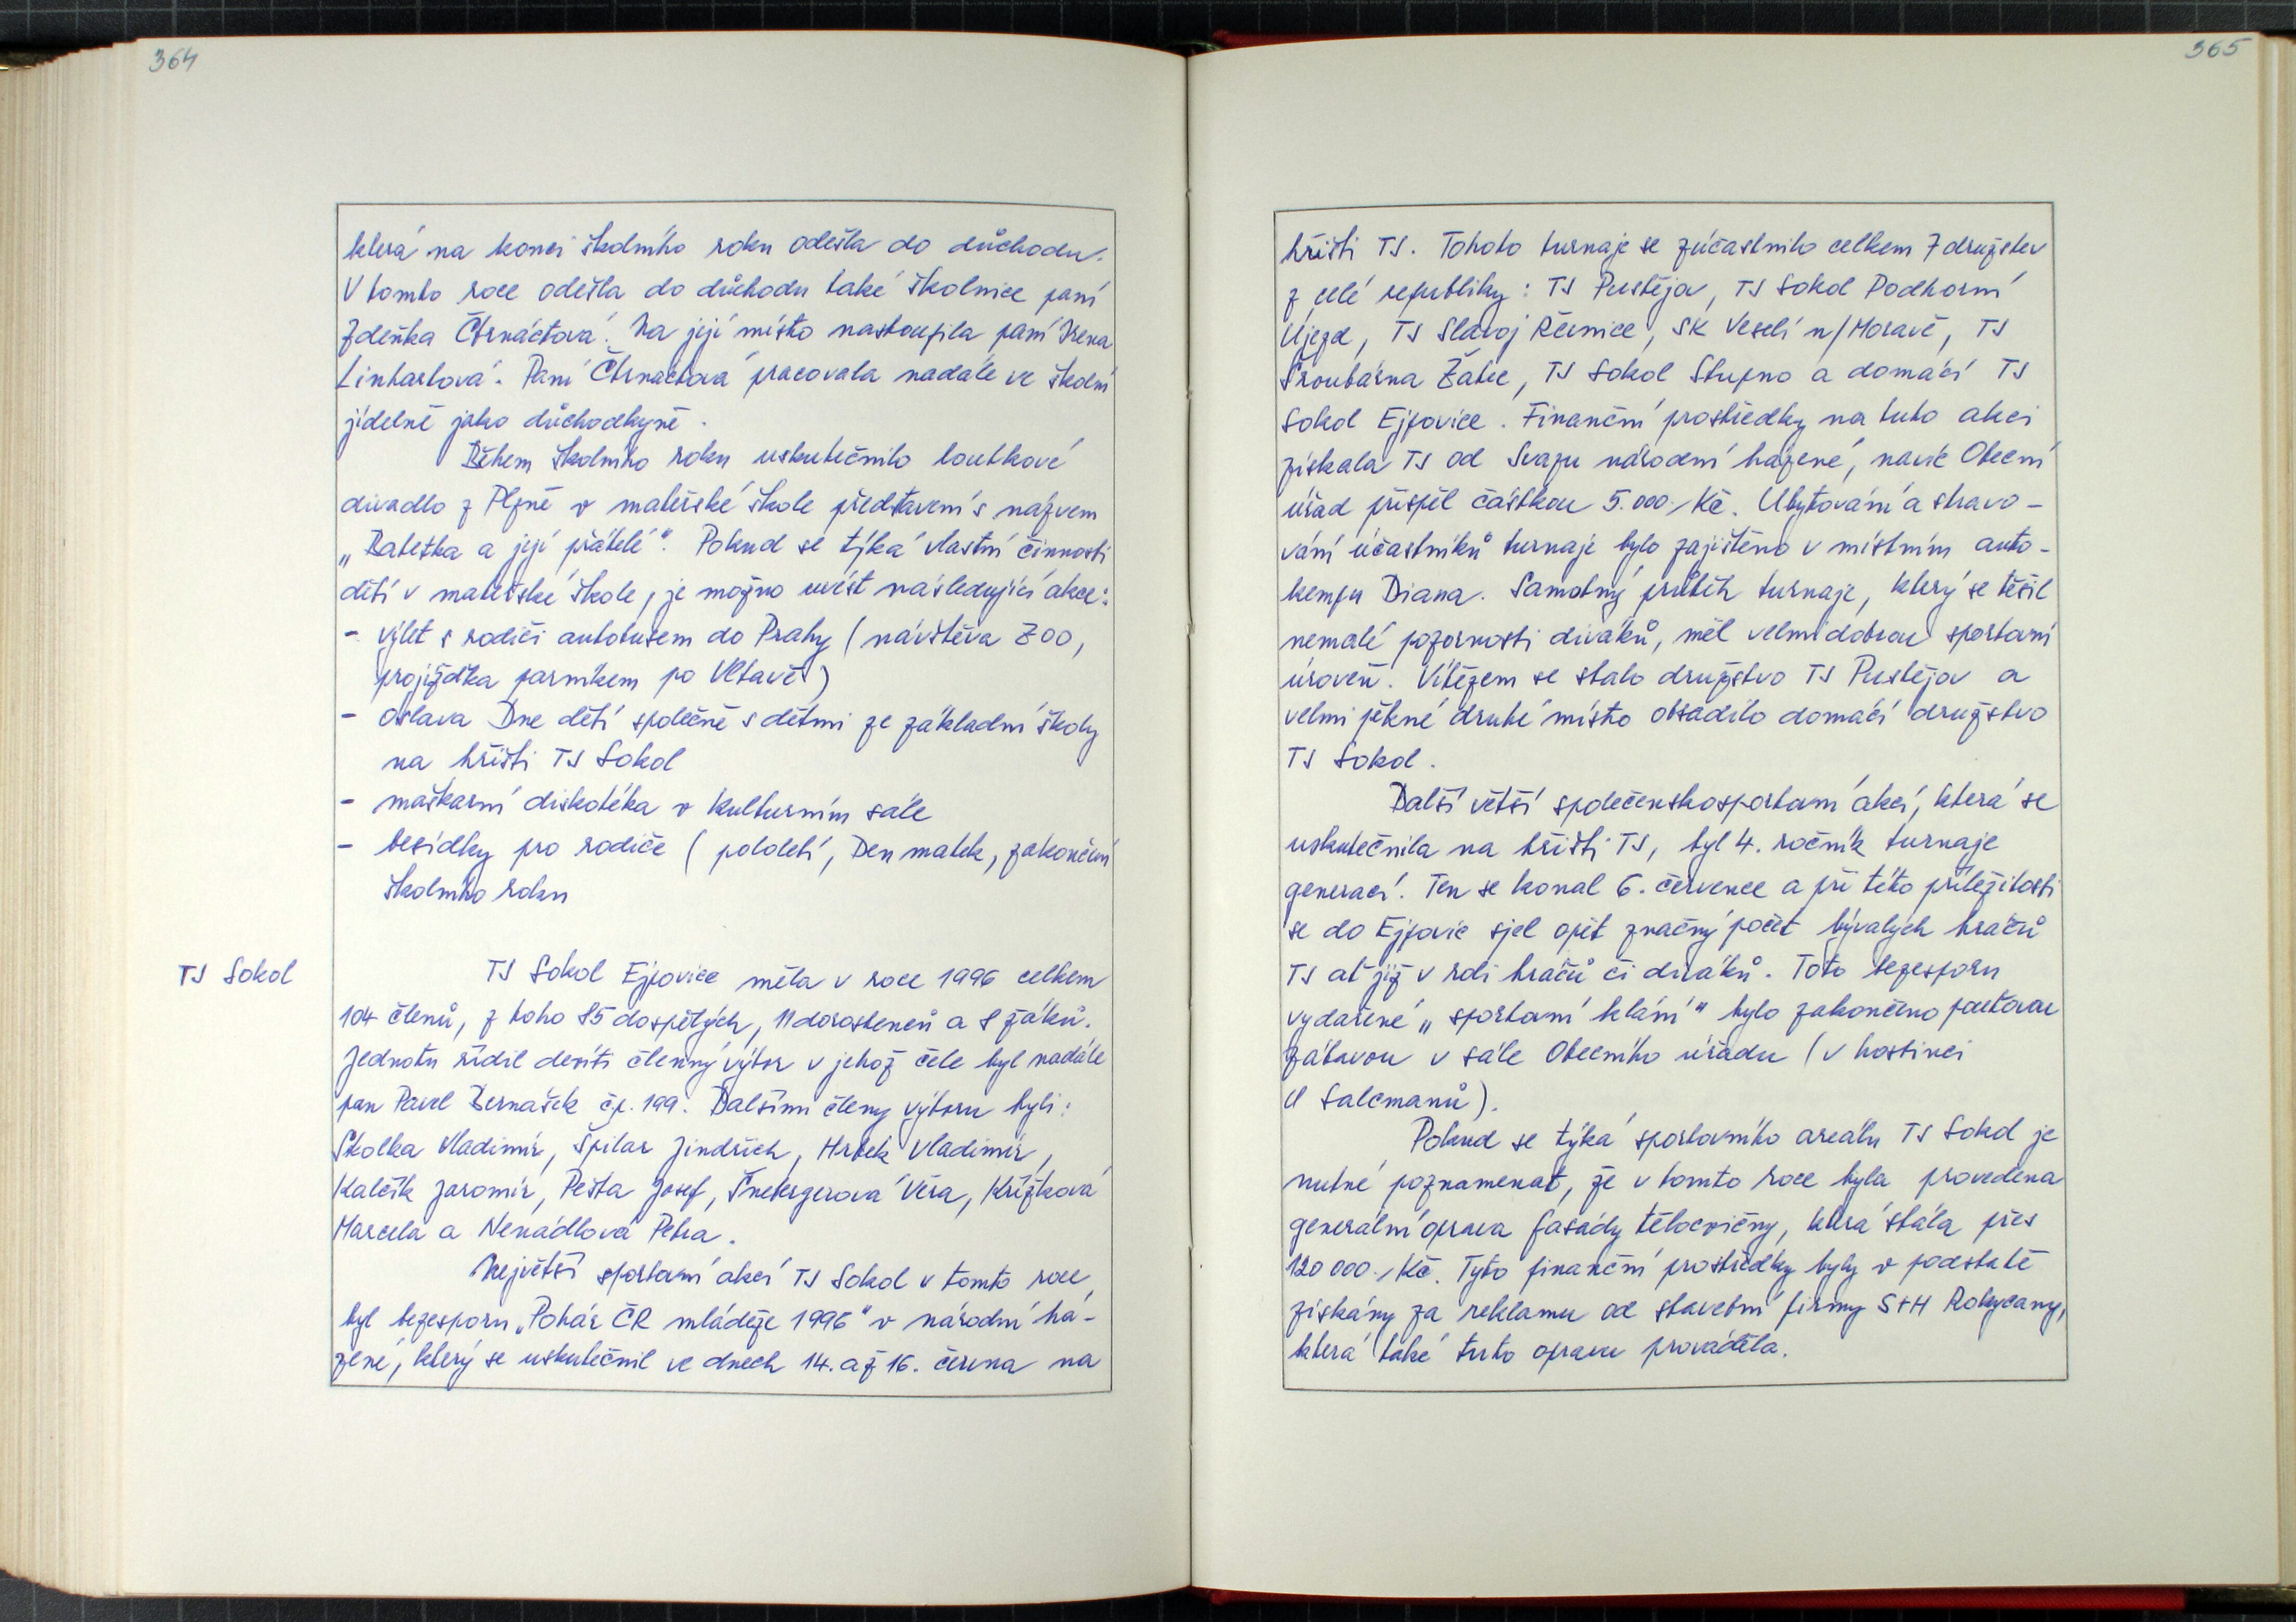 364
která na konci školního roku odešla do důchodu.
V tomto roce odešla do důchodu také školnice paní
Zdeňka Čtrnáctová. Na její místo nastoupila paní Irena
Linhartová. Paní Čtrnáctová pracovala nadále ve školní
jídelně jako důchodkyně.
Během školního roku uskutečnilo loutkové
divadlo z Plzně v mateřské škole představení s názvem
„Babetka a její přátelé". Pokud se týká vlastní činnosti
dětí v mateřské škole, je možno uvést následující akce:
- výlet s rodiči autobusem do Prahy (návštěva ZOO,
projížďka parníkem po Vltavě)
- oslava Dne dětí společně s dětmi ze základní školy
na hřišti TJ Sokol
- maškarní diskotéka v kulturním sále
- besídky pro rodiče (pololetí, Den matek, zakončení
školního roku
TJ Sokol
TJ Sokol Ejpovice měla v roce 1996 celkem
104 členů, z toho 85 dospělých, 11 dorostenců a 8 žáků.
Jednotu řídil devíti členný výbor v jehož čele byl nadále
pan Pavel Bernášek č.p. 199. Dalšími členy výboru byli:
Skolka Vladimír, Špilar Jindřich, Hrbek Vladimír,
Kalčík Jaromír, Pešta Josef, Šnebergerová Věra, Křížková
Marcela a Nenádlová Petra.
Největší sportovní akcí TJ Sokol v tomto roce,
byl bezesporu „Pohár ČR mládeže 1996" v národní há-
zené, který se uskutečnil ve dnech 14. až 16. června na
365
hřišti TJ. Tohoto turnaje se zúčastnilo celkem 7 družstev
z celé republiky: TJ Pustějov, TJ Sokol Podhorní
Újezd, TJ Slavoj Řevnice, SK Veselí n/Moravě, TJ
Šroubárna Žatec, TJ Sokol Stupno a domácí TJ
Sokol Ejpovice. Finanční prostředky na tuto akci
získala TJ od Svazu národní házené, navíc Obecní
úřad přispěl částkou 5.000,- Kč. Ubytování a stravo-
vání účastníků turnaje bylo zajištěno v místním auto-
kempu Diana. Samotný průběh turnaje, který se těšil
nemalé pozornosti diváků, měl velmi dobrou sportovní
úroveň. Vítězem se stalo družstvo TJ Pustějov a
velmi pěkné druhé místo obsadilo domácí družstvo
TJ Sokol.
Další větší společenskosportovní akcí, která se
uskutečnila na hřišti TJ, byl 4. ročník turnaje
generací. Ten se konal 6. července a při této příležitosti
se do Ejpovic sjel opět značný počet bývalých hráčů
TJ ať již v roli hráčů či diváků. Toto bezesporu
vydařené „sportovní klání" bylo zakončeno pouťovou
zábavou v sále Obecního úřadu (v hostinci
U Salcmanů).
Pokud se týká sportovního areálu TJ Sokol je
nutné poznamenat, že v tomto roce byla provedena
generální oprava fasády tělocvičny, která stála přes
120 000,- Kč. Tyto finanční prostředky byly v podstatě
získány za reklamu od stavební firmy S+H Rokycany,
která také tuto opravu prováděla.